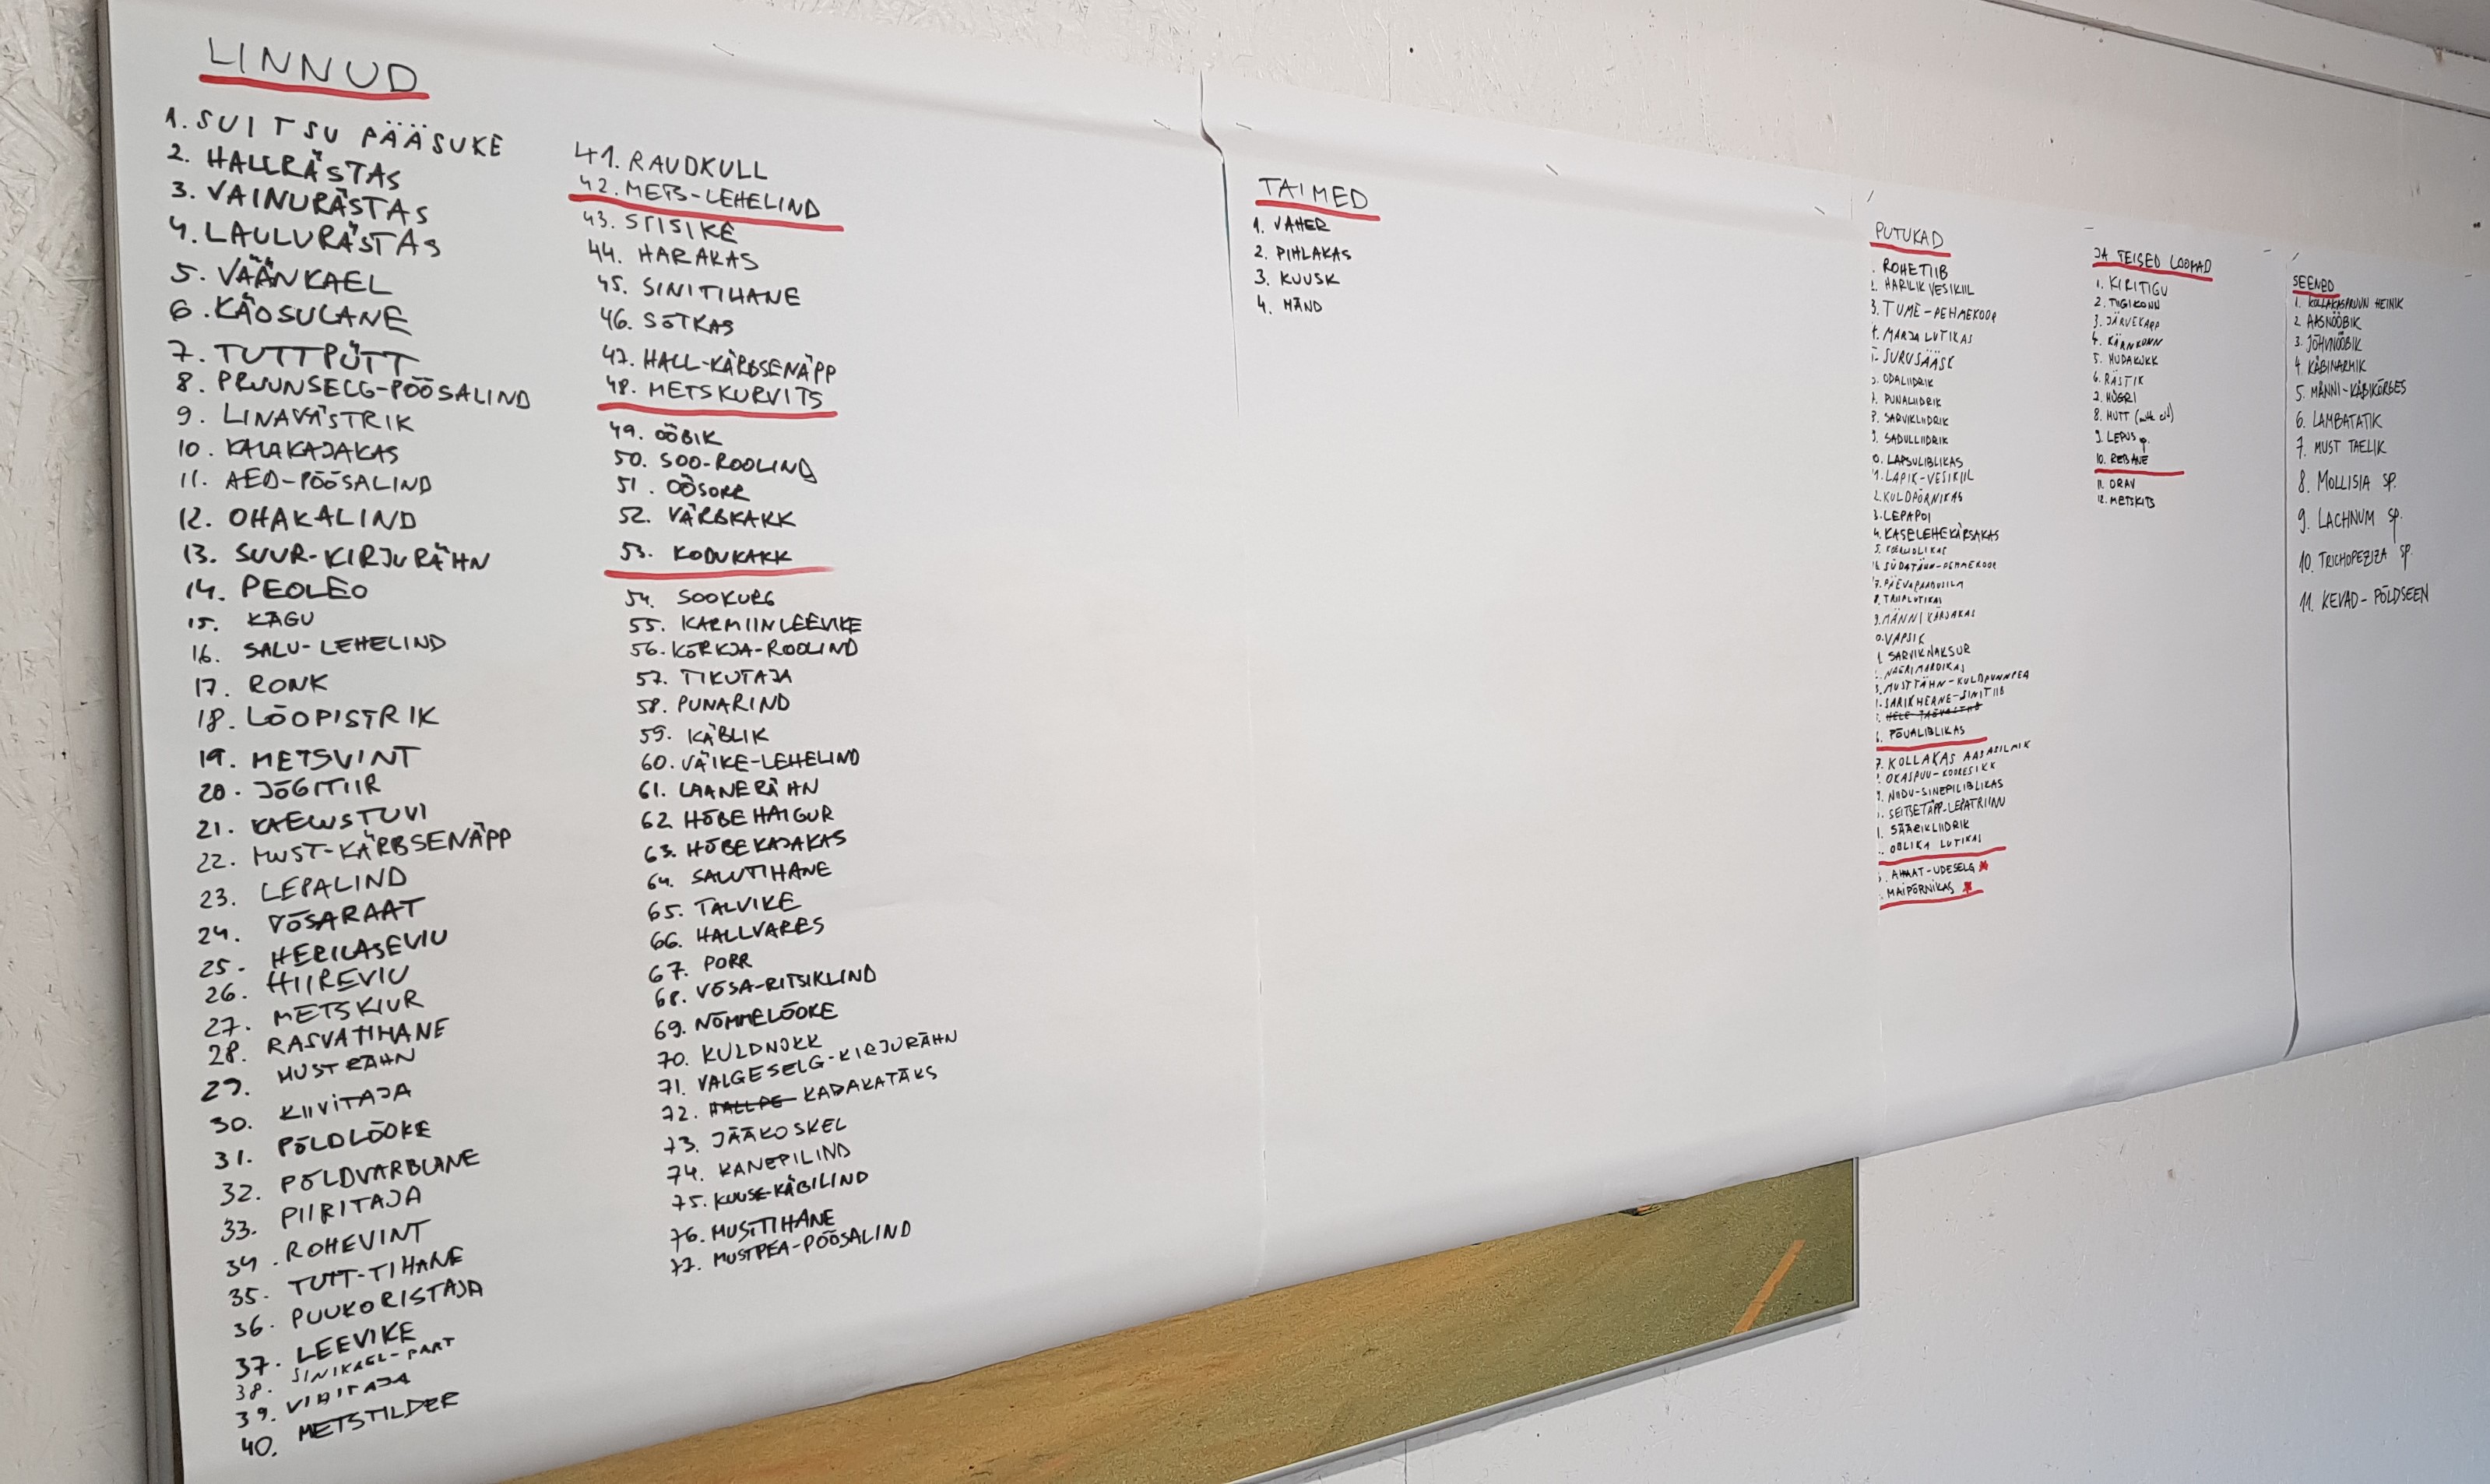 LINNUD
1. SUITSU PÄÄSUKE
2. HALLRÄSTAS
3. VAINURÄSTAS
4. LAULURÄSTAS
5. VÄÄNKAEL
6. KÄOSULANE
7. TUTTPÜTT
8. PRUUNSELG-PÕÕSALIND
9. LINAVÄSTRIK
10. KALAKAJAKAS
11. AED-PÕÕSALIND
12. OHAKALIND
13. SUUR-KIRJURÄHN
14. PEOLEO
15. KÄGU
16. SALU-LEHELIND
17. RONK
18. LÕOPISTRIK
19. METSVINT
20. JÕGITIIR
21. KAELUSTUVI
22. MUST-KÄRBSENÄPP
23. LEPALIND
24. VÕSARAAT
25. HERILASEVIU
26. HIIREVIU
27. METSKIUR
28. RASVATIHANE
29. MUSTRÄHN
30. KIIVITAJA
31. PÕLDLÕOKE
32. PÕLDVARBLANE
33. PIIRITAJA
34. ROHEVINT
35. TUTT-TIHANE
36. PUUKORISTAJA
37. LEEVIKE
38. SINIKAEL-PART
39. VIHITAJA
40. METSTILDER
41. RAUDKULL
42. METS-LEHELIND
43. STISIKE
44. HARAKAS
45. SINITIHANE
46. SÕTKAS
47. HALL-KÄRBSENÄPP
48. METSKURVITS
49. ÖÖBIK
50. SOO-ROOLIND
51. ÖÖSORR
52. VÄRBKAKK
53. KODUKAKK
54. SOOKURG
55. KARMIINLEEVIKE
56. KÕRKJA-ROOLIND
57. TIKUTAJA
58. PUNARIND
59. KÄBLIK
60. VÄIKE-LEHELIND
61. LAANERÄHN
62 HÕBEHAIGUR
63. HÕBEKAJAKAS
64. SALUTIHANE
65. TALVIKE
66. HALLVARES
67. PORR
68. VÕSA-RITSIKLIND
69. NÕMMELÕOKE
70. KULDNOKK
71. VALGESELG-KIRJURÄHN
72. HALLPE KADAKATÄKS
73. JÄÄKOSKEL
74. KANEPILIND
75. KUUSE-KÄBILIND
76. MUSTTIHANE
77. MUSTPEA-PÕÕSALIND
TAIMED
1. VAHER
2. PIHLAKAS
3. KUUSK
4. MÄND
PUTUKAD
. ROHETIIB
2. HARILIK VESIKIIL
3. TUME-PEHMEKOOR
4. MARJALUTIKAS
SURUSÄÄSK
ODALIIDRIK
PUNALIIDRIK
SARVIKLIIDRIK
SADULLIIDRIK
0. LAPSULIBLIKAS
1. LAPIK-VESIKIIL
2. KULDPÕRNIKAS
3. LEPAPOI
4. KASELEHEKÄRSAKAS
SÜDATÄHN-PEHMEKOOR
7. PÄEVAPAABUSILM
8. TRIIPLUTIKAS
9. MÄNNIKÄRSAKAS
0. VAPSIK
1. SARVIKNAKSUR
NAERIMARDIKAS
3. MUSTTÄHN-KULDPUNNPEA
SARIKHERNE-SINITIIB
HELE-TAEVASTIIB
6. PÕUALIBLIKAS
7. KOLLAKAS AASASILMIK
OKASPUU-KOORESIKK
9. NIIDU-SINEPILIBLIKAS
SEITSETÄPP-LEPATRIINU
1. SÄÄRIKLIIDRIK
OBLIKA LUTIKAS
AHMAT-UDESELG
MAIPÕRNIKAS
JA TEISED LOOMAD
1. KIRITIGU
2. TIIGIKONN
3. JÄRVEKARP
4. KÄRNKONN
5. MUDAKUKK
6. RÄSTIK
7. HÜGRI
8. MUTT
9. LEPUS sp.
10. REBANE
11. ORAV
12. METSKITS
SEENED
1. KOLLAKASPRUUN HEINIK
2 AASNÖÖBIK
3. JÕHVNÖÖBIK
4. KÄBINARMIK
5. MÄNNI-KÄBIKÕRGES
6. LAMBATATIK
7. MUST TAELIK
8. MOLLISIA SP.
9. LACHNUM SP.
10. TRICHOPEZIZA SP.
11. KEVAD-PÕLDSEEN